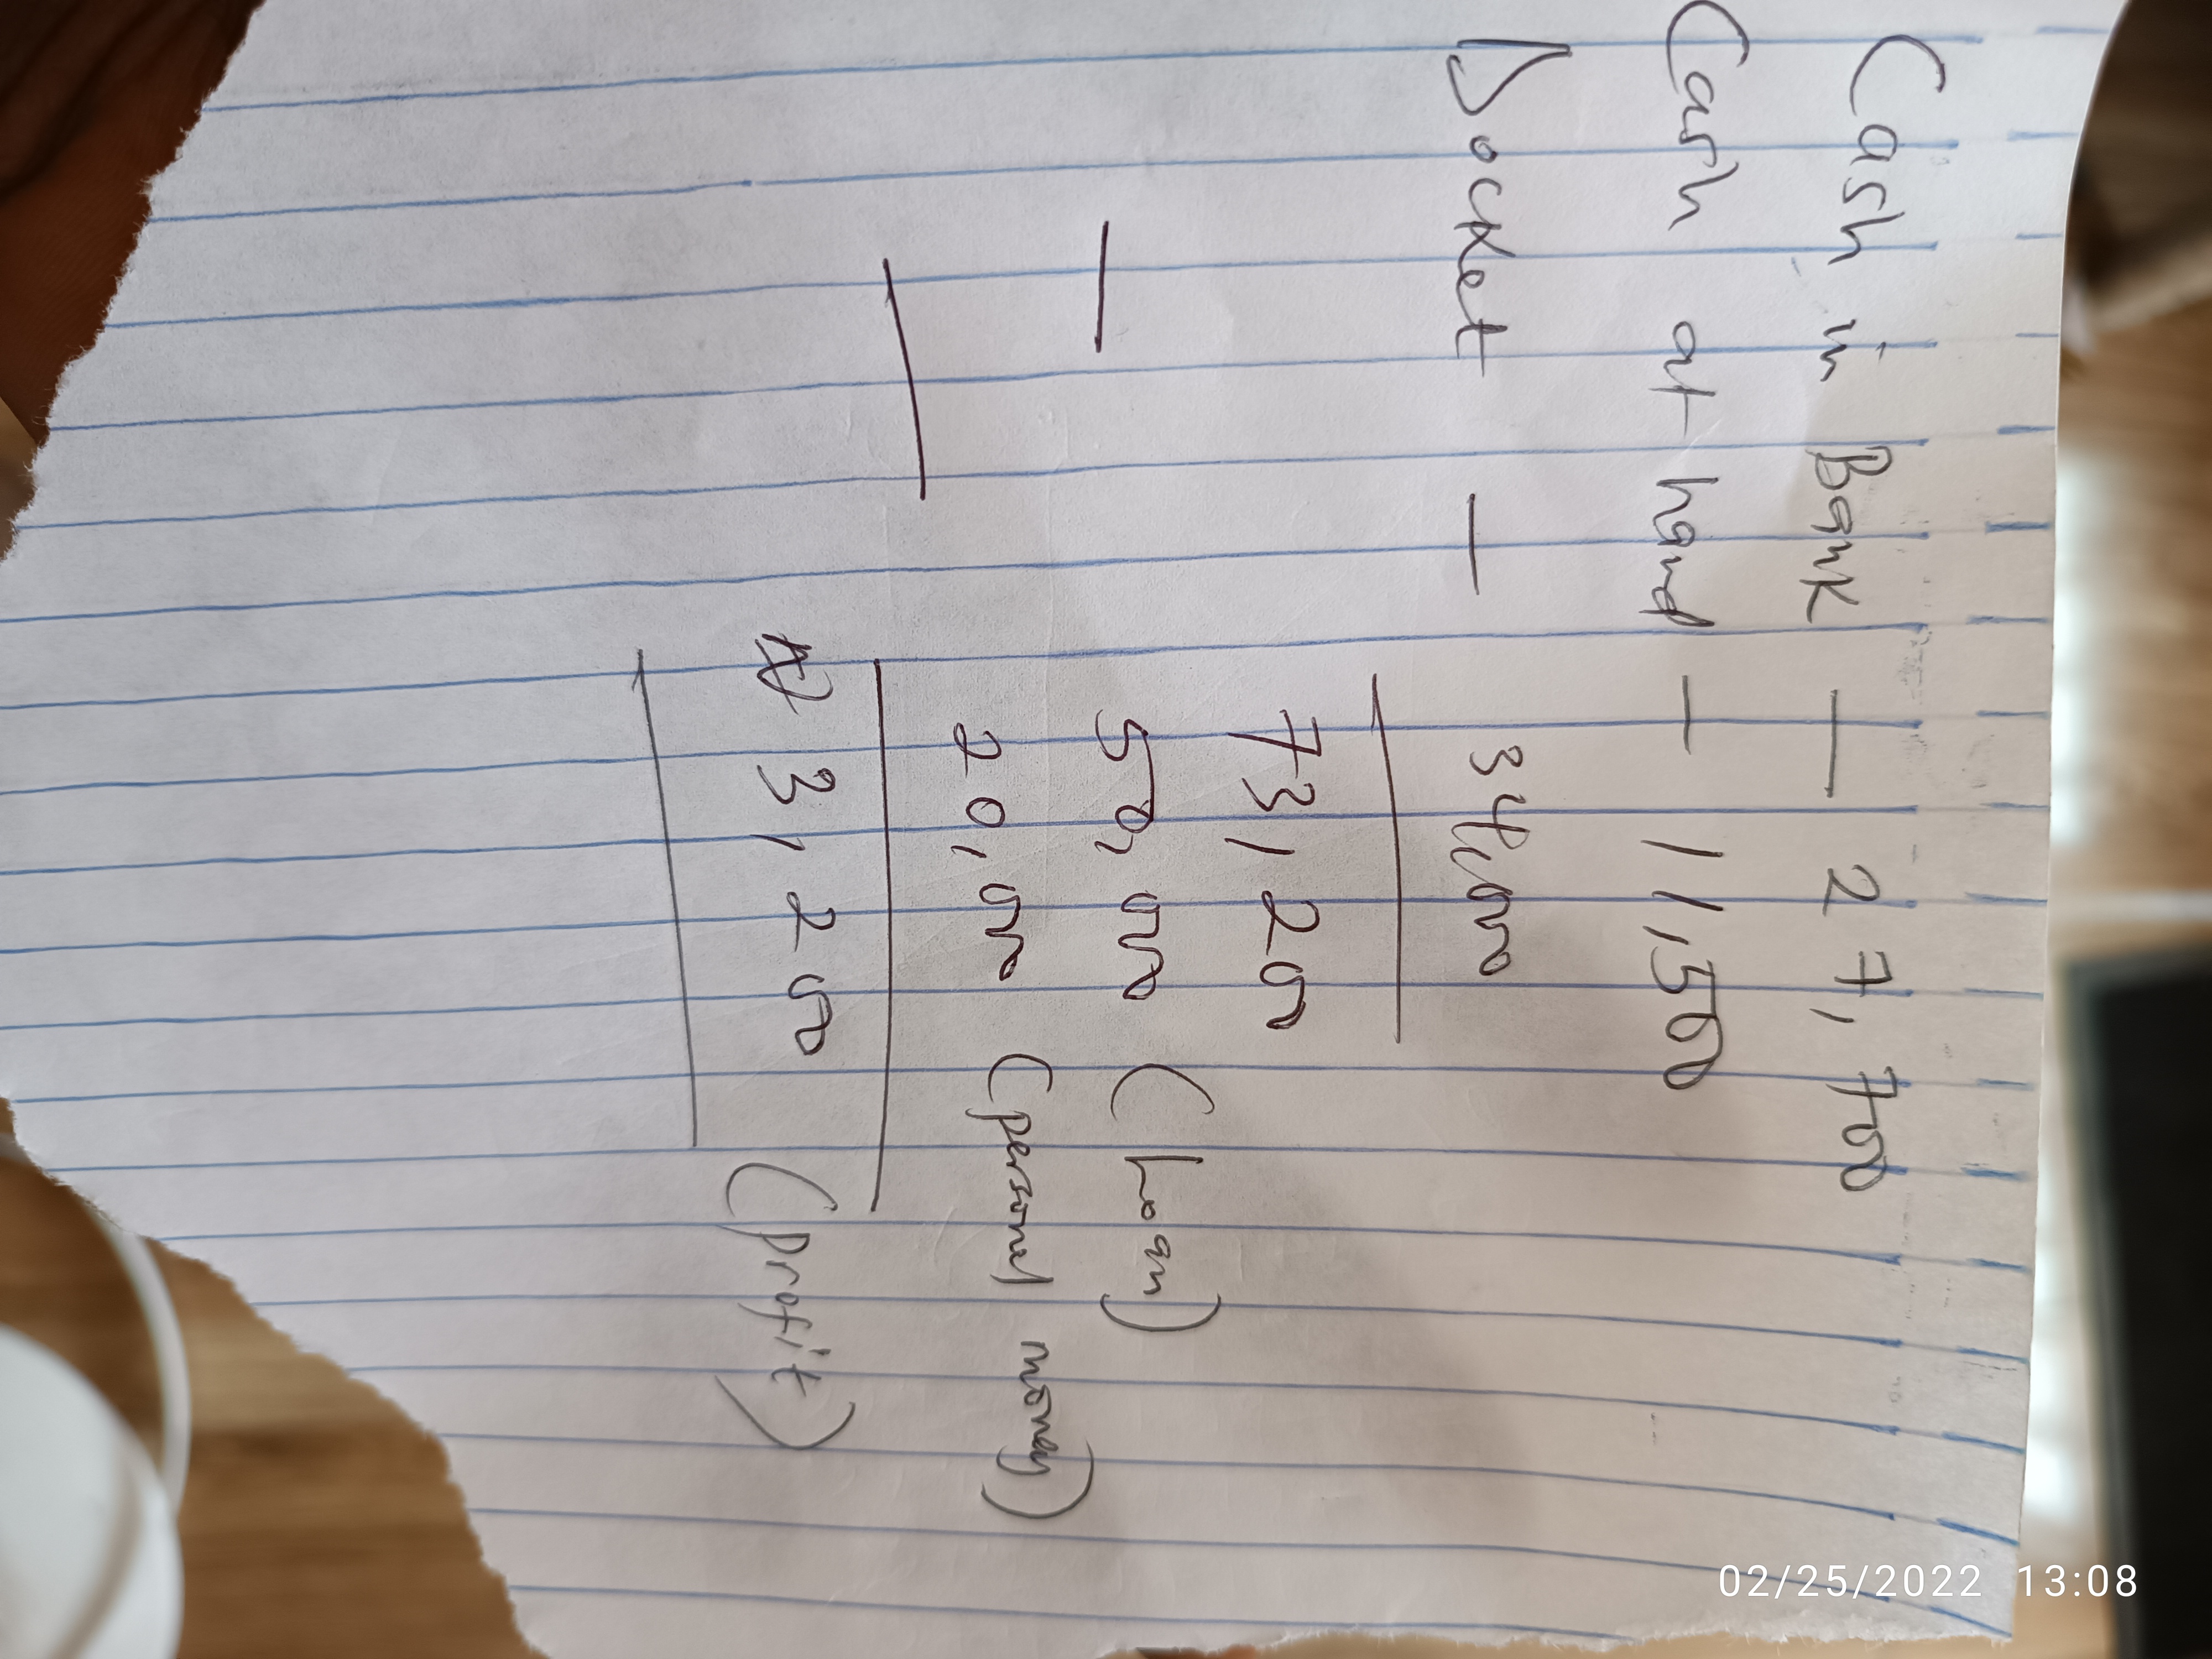 Cash in Bank — 27,700
Cash at hand — 11,500
Docket — 34,000
73,200
— 50,000 (Loan)
20,000 (personal money)
₦ 3,200 (profit)
02/25/2022 13:08